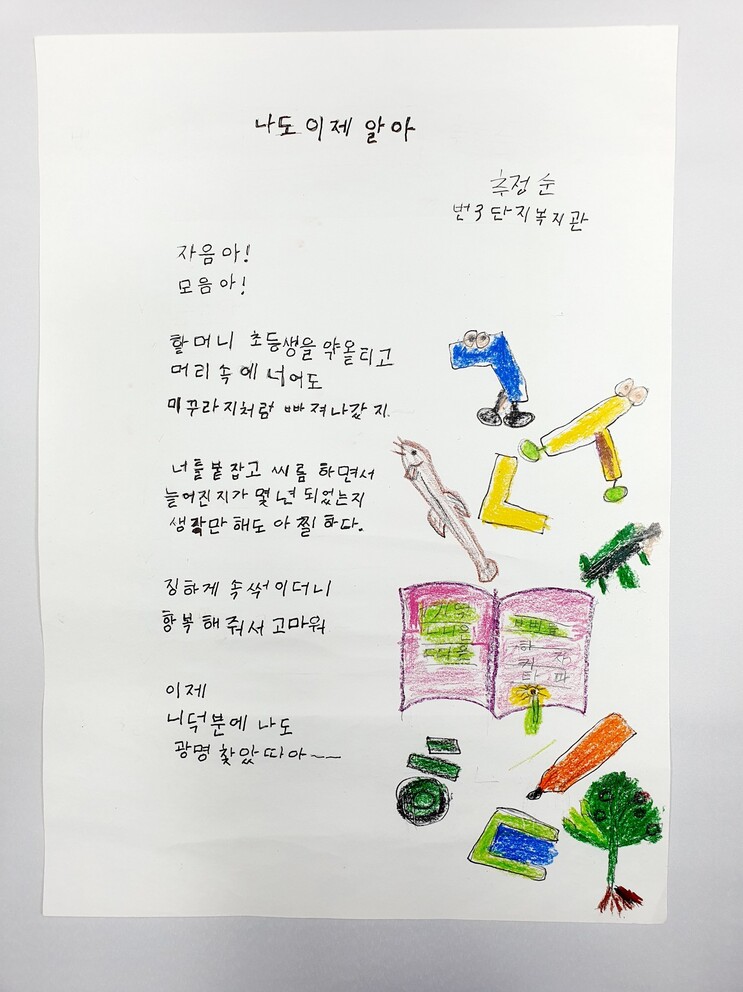 나도 이제 알아
추정순
번3단지복지관
자음아!
모음아!
할머니 초등생을 약올리고
머리속에 너어도
미꾸라지처럼 빠져나갔지
너를 붙잡고 씨름 하면서
늘어진지가 몇 년 되었는지
생각만 해도 아찔하다.
징하게 속썩이더니
항복해줘서 고마워
이제
니덕분에 나도
광명찾았따아~~